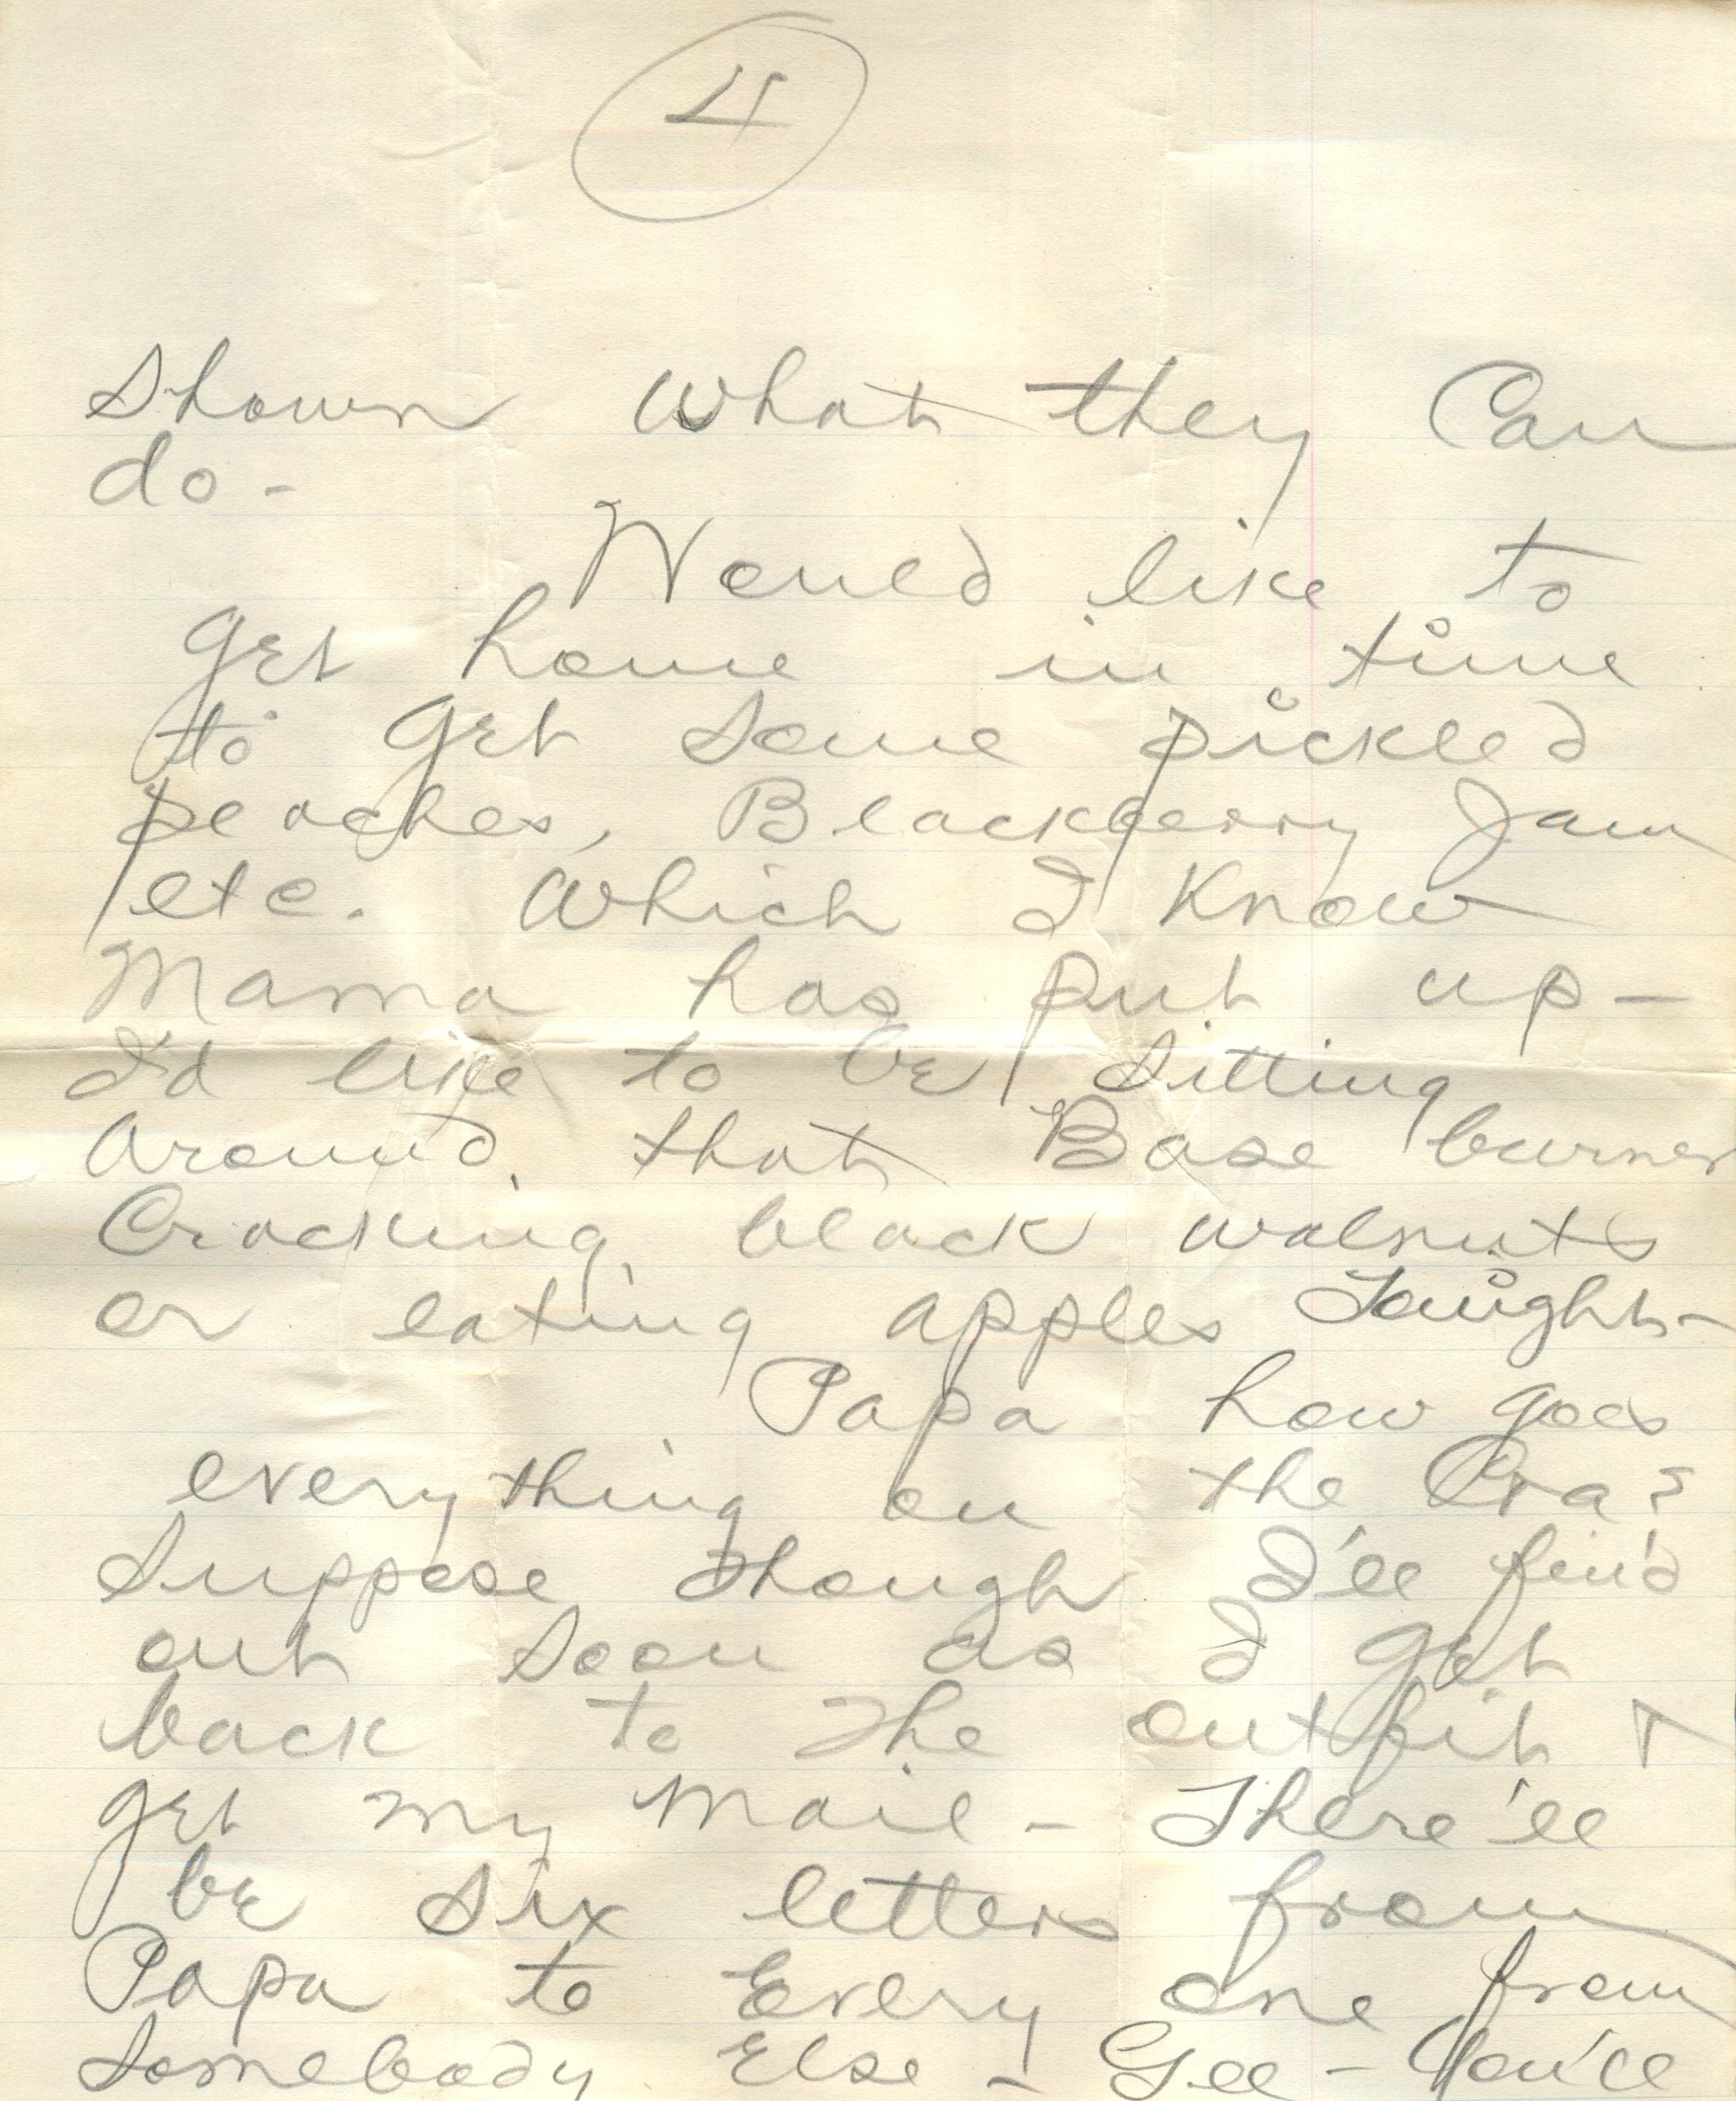 4
Shown what they Can
do -
Would like to
get home in time
to get some pickled
peaches, Blackberry Jam
etc. Which I Know
Mama has put up -
I'd like to be sitting
around that Base burner
Cracking black walnuts
or eating apples Tonight -
Papa how goes
everything on the ?
Suppose though I'll find
out soon as I get
back to the outfit &
get my mail - There'll
be six letters from
Papa to Every one from
Somebody Else - Gee - You'll